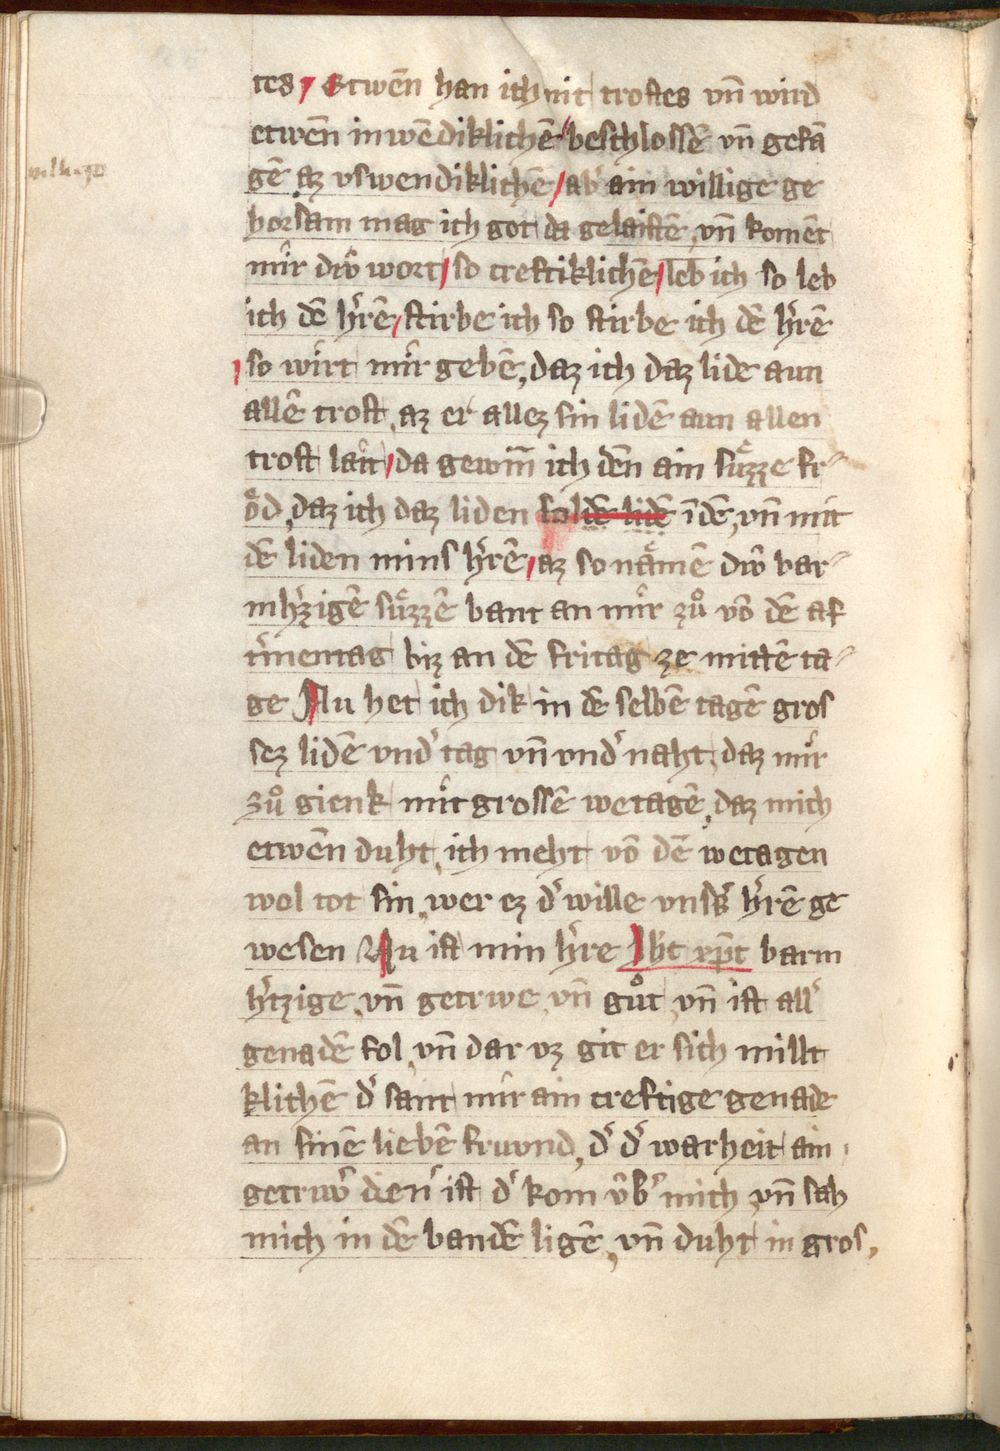 tes / Etwen̄ han ich nit trostes vn̄ wird
etwen̄ inwēdiklichē / beschlossē vn̄ gefā
gē az vswendiklichē / ab᷑ ain willige ge
horsam mag ich got da gelaistē vn̄ komēt
mir diŵ wort / so creftiklichē / leb ich so leb
ich dē h᷑rē / stirbe ich so stirbe ich dē h᷑rē
/ so wirt mir gebē, daz ich daz lide aun
allē trost, az er allez sin lidē aun allen
trost lait / da gewin̄ ich den̄ ain sůzze fr⸗
ôd, daz ich daz liden in dē, vn̄ mit
dē liden mins h᷑rē / az so nāmē diŵ bar⸗
mh᷑zigē sůzzē bant an mir zů vō dē af
t᷑mentag biz an dē fritag ze mittē ta⸗
ge Nu het ich dik in dē selbē tagē gros
sez lidē vnd᷑ tag vn̄ vnd᷑ naht, daz mir
zů gienk mit grossē wetagē, daz mich
etwen̄ duht, ich meht vō dē wetagen
wol tot sin, wer ez d᷑ wille vnss᷑ h᷑rē ge
wesen Nu ist min h᷑re Jh᷑c xp̄c barm
h᷑tzige, vn̄ getrwe, vn̄ gůt, vn̄ ist all᷑
genadē fol, vn̄ dar vz git er sich millt
klichē d᷑ sant mir ain creftige genade
an sinē liebē fruvnd, d᷑ d᷑ warheit ain
getriw᷑ dien᷑ ist d᷑ kom v̂b᷑ mich, vn̄ sah
mich in dē bandē ligē, vn̄ duht in gros,